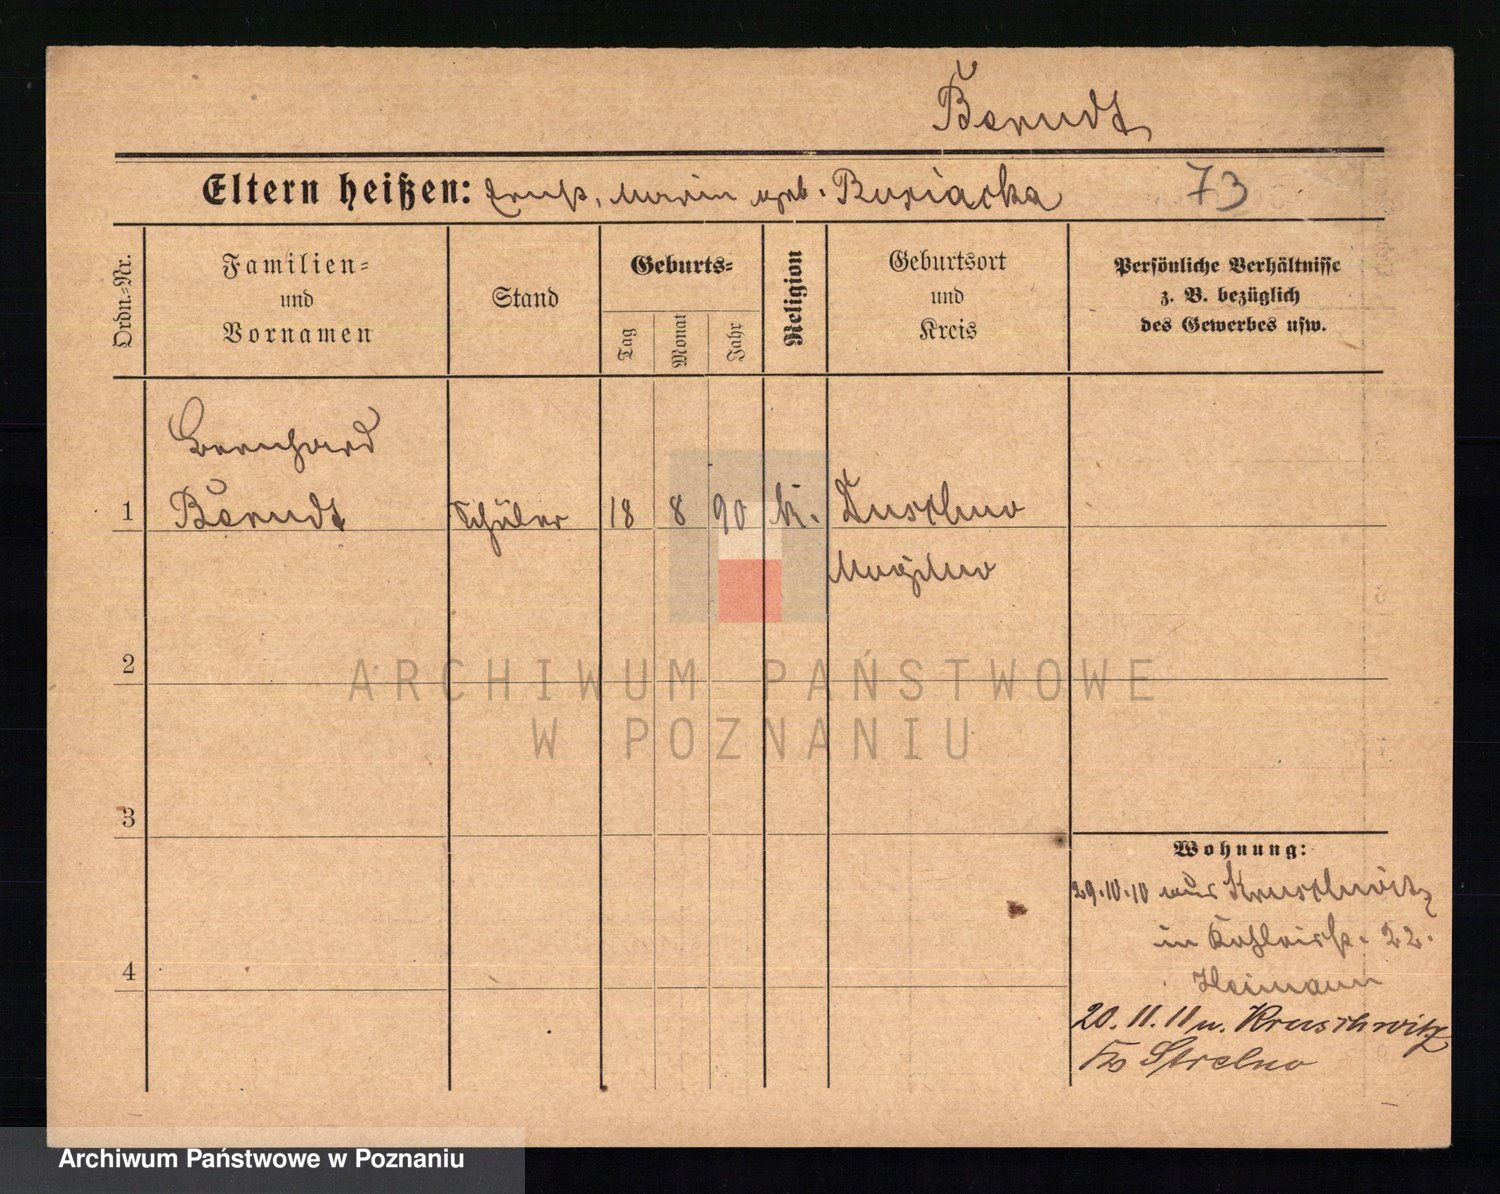 Berndt
Eltern heißen: Ernst, Maria geb. Rusiacka 73
Ordn.-Nr.
Familien-
und
Vornamen
Stand
Geburts-
Tag
Monat
Jahr
Religion
Geburtsort
und
Kreis
Persönliche Verhältnisse
z. B. bezüglich
des Gewerbes usw.
Bernhard
1 Berndt Schüler 18 8 90 k.
Mogilno
2
3
4
Wohnung:
29.10.10 aus Kruschwitz
in 22.
Heimann
20.11.11 n. Kruschwitz
Strelno
ARCHIWUM PAŃSTWOWE
W POZNANIU
Archiwum Państwowe w Poznaniu